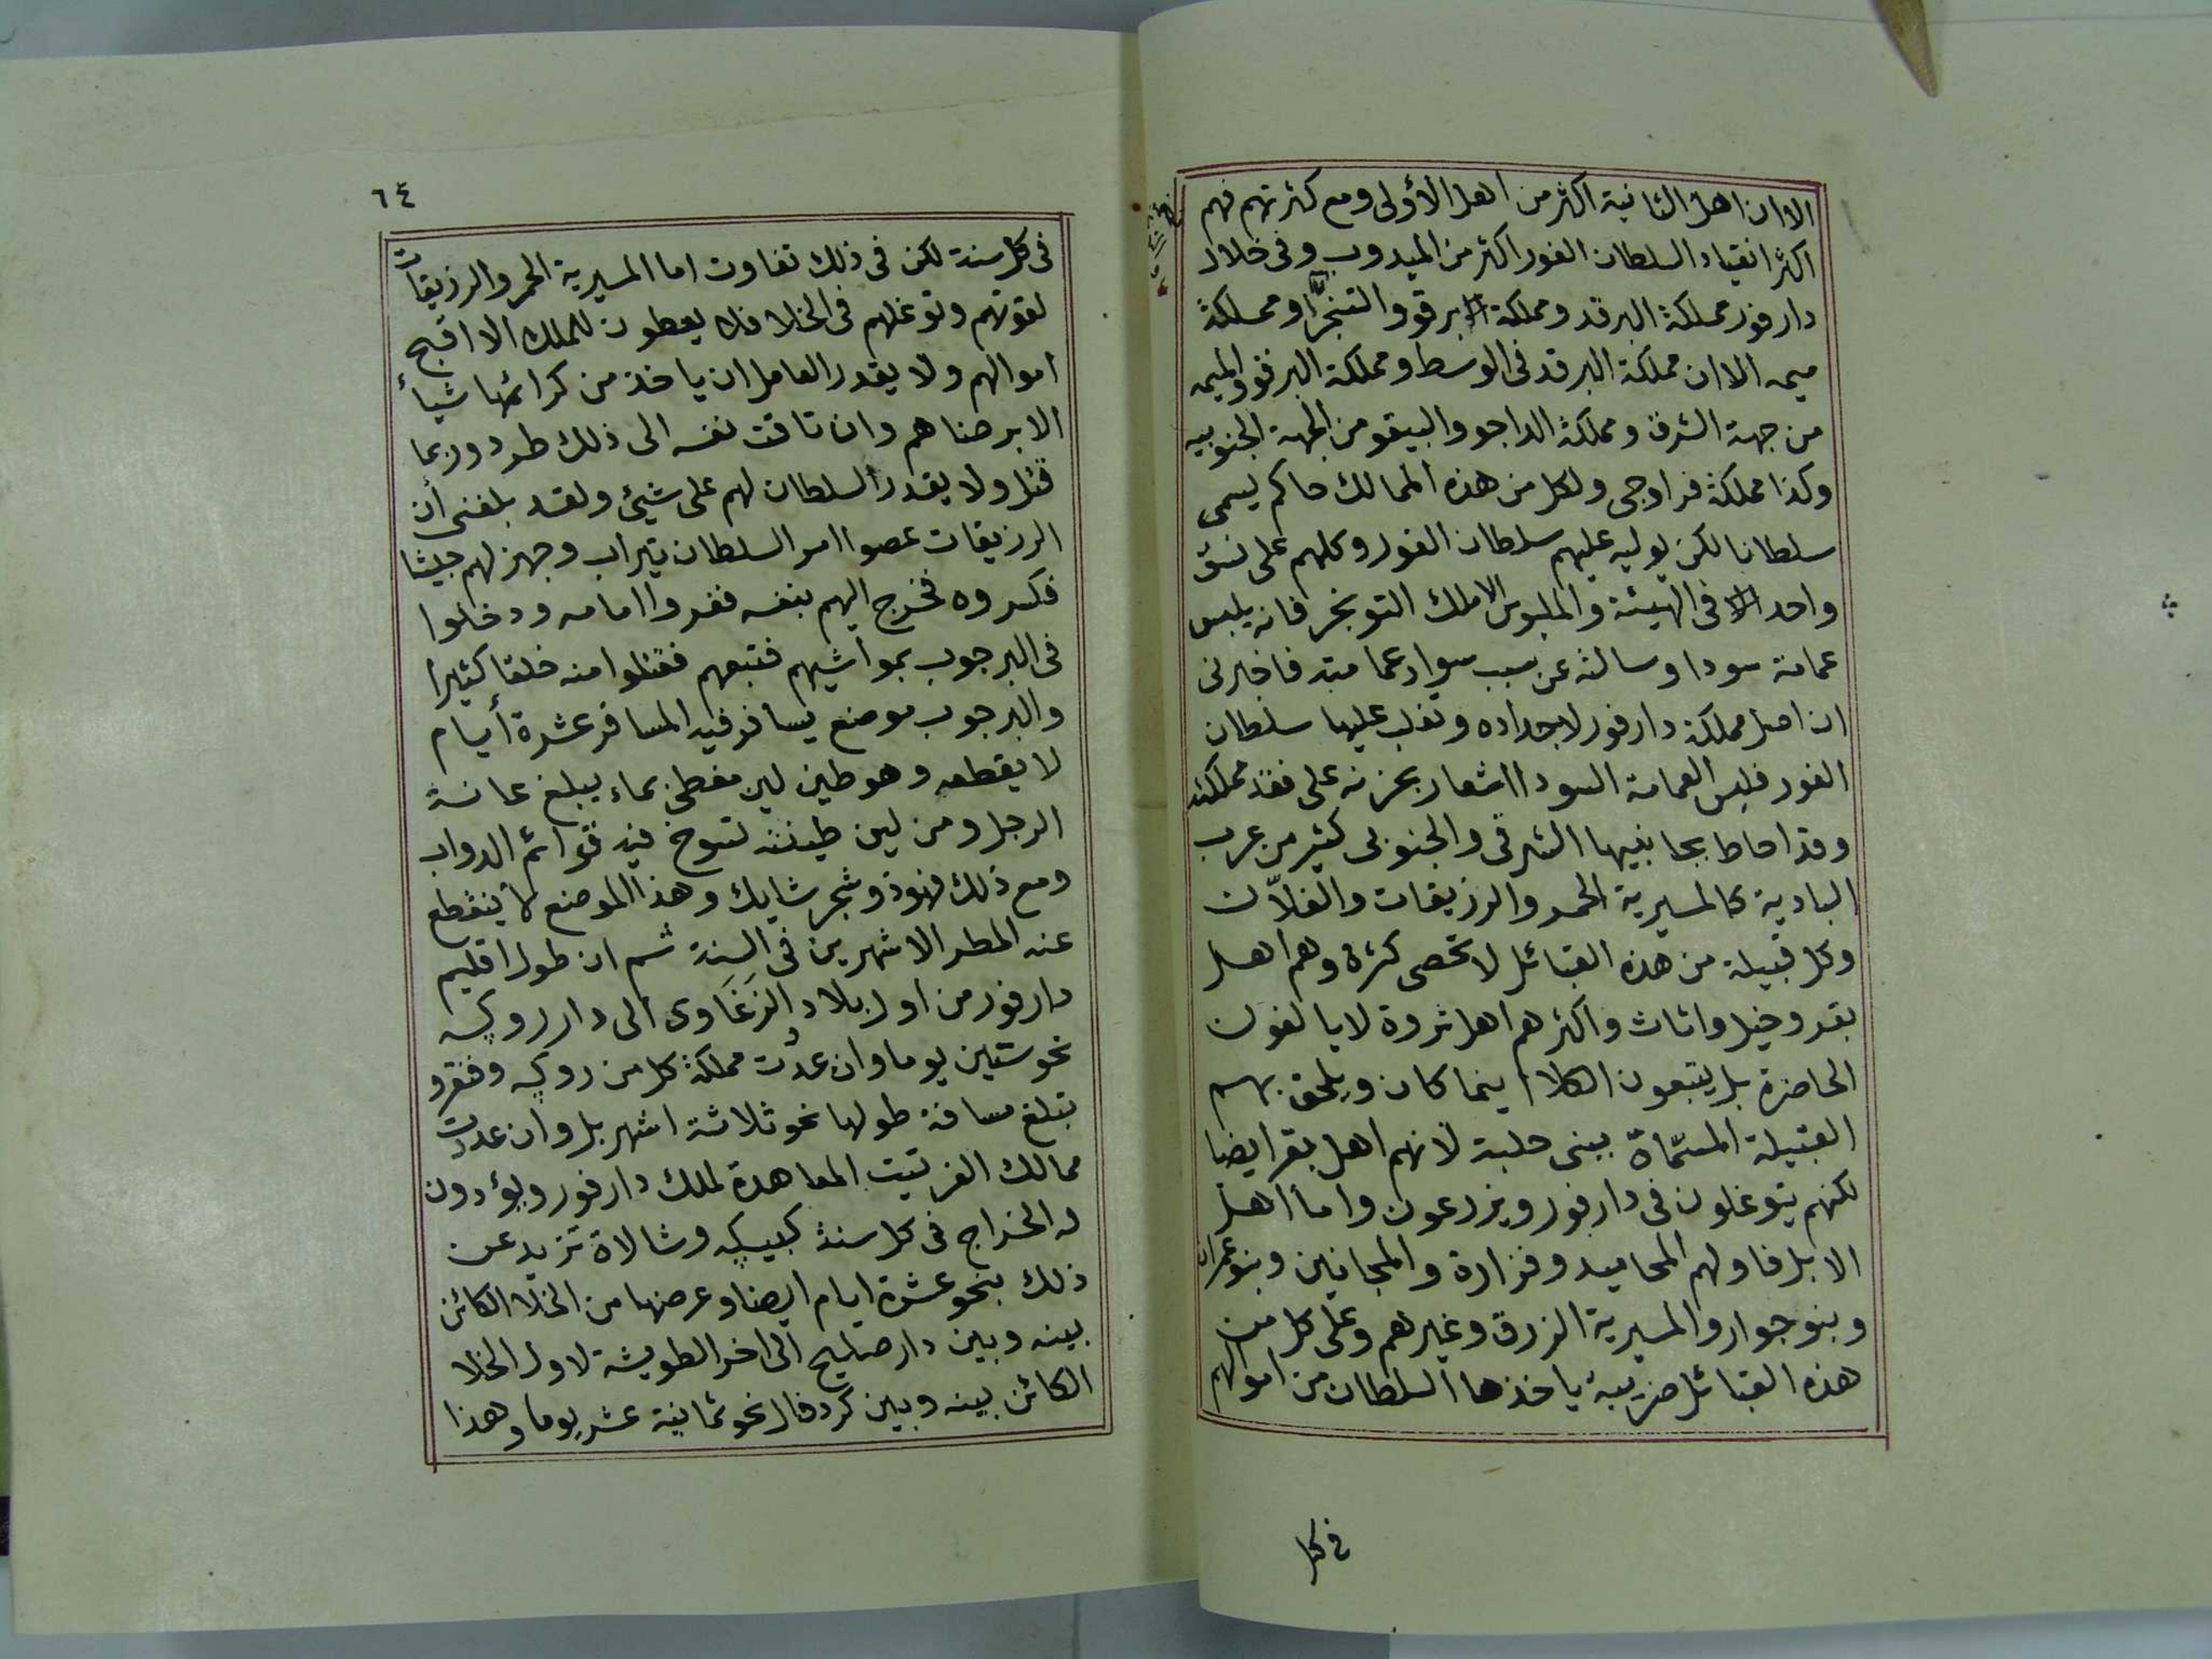 الا ان اهل الثانية اكثر من اهل الأولى ومع كثرتهم فهم
اكثر انقيادا لسلطان الفور اكثر من الميدوب وفى خلال
دارفور مملكة البرقد ومملكة برقو والتنجر ومملكة
ميمه الا ان مملكة البرقد فى الوسط ومملكة البرقو والميمه
من جهة الشرق ومملكة الداجو والبيقو من الجهة الجنوبيه
وكذا مملكة فراوجى ولكل من هذه الممالك حاكم يسمى
سلطانا لكن يوليه عليهم سلطان الفور وكلهم على نسق
واحد فى الهيئة والملبوس الا ملك التونجر فانه يلبس
عمامة سودا وسالته عن سبب سواد عمامته فاخبرنى
ان اصل مملكة دارفور لاجداده وتغلب عليها سلطان
الفور فلبس العمامة السودا اشعار بحزنه على فقد مملكته
وقد احاط بجانبيها الشرقى والجنوبى كثير من عرب
البادية كالمسيرية الحمر والرزيقات والفلاّن
وكل قبيلة من هذه القبائل لا تحصى كثرة وهم اهل
بقر وخيل واثاث واكثرهم اهل ثروة لا يالفون
الحاضرة بل يتبعون الكلا اينما كان ويلحق بهم
القبيلة المسمّاة ببنى حلبة لانهم اهل بقر ايضا
لكنهم يتوغلون فى دارفور ويزرعون واما اهل
الابل فاولهم المحاميد وفزارة والمجانين وبنو عمران
وبنو جرار والمسيرية الزرق وغيرهم وعلى كل من
هذه القبائل ضريبة ياخذها السلطان من اموالهم
فى كل
٦٤
فى كل سنة لكن فى ذلك تفاوت اما المسيرية الحمر والرزيقات
لقوتهم وتوغلهم فى الخلا فلا يعطون للملك الا اقبح
اموالهم ولا يقدر العامل ان ياخذ من كرائمها شيأ
الا برضاهم وان تاقت نفسه الى ذلك طرد وربما
قتل ولا يقدر السلطان لهم على شيئ ولقد بلغنى أن
الرزيقات عصوا امر السلطان تيراب وجهز لهم جيشا
فكسروه فخرج اليهم بنفسه ففروا امامه ودخلوا
فى البرجوب بمواشيهم فتبعهم فقتلوا منه خلقا كثيرا
والبرجوب موضع يسافر فيه المسافر عشرة أيام
لا يقطعه وهو طين لين مغطى بماء يبلغ عانة
الرجل ومن لين طينته تسوخ فيه قوائم الدواب
ومع ذلك فهو ذو شجر شايك وهذا الموضع لا ينقطع
عنه المطر الا شهرين فى السنة ثم ان طول اقليم
دارفور من اول بلاد الزَغَاوى الى دار رويكه
نحو ستين يوما وان عدّت مملكة كل من رويكه وفنقرو
تبلغ مسافة طولها نحو ثلاثة اشهر بل وان عددت
ممالك الفرتيت المعاهدة لملك دارفور ويؤدون
له الخراج فى كل سنة كبيكه وشالاة تزيد عن
ذلك بنحو عشرة ايام ايضا وعرضها من الخلا الكائن
بينه وبين دار صليح الى اخر الطويشة لاول الخلا
الكائن بينه وبين كردفال نحو ثمانية عشر يوما وهذا